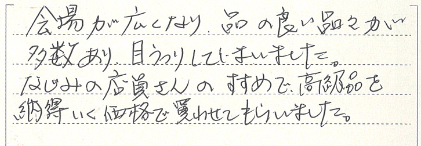 会場が広くなり、品の良い品々が
多数あり、目うつりしてしまいました。
なじみの店員さんのすすめで、高級品を
納得いく価格で買わせてもらいました。